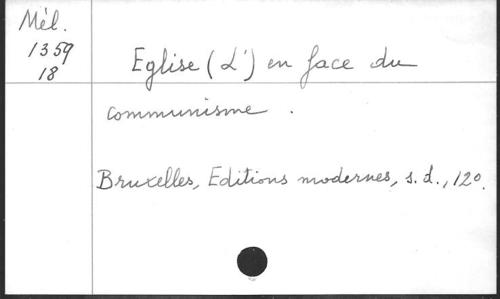 Mél.
1359
18
Eglise (L') en face du
communisme.
Bruxelles, Editions modernes, s.d., 12°.